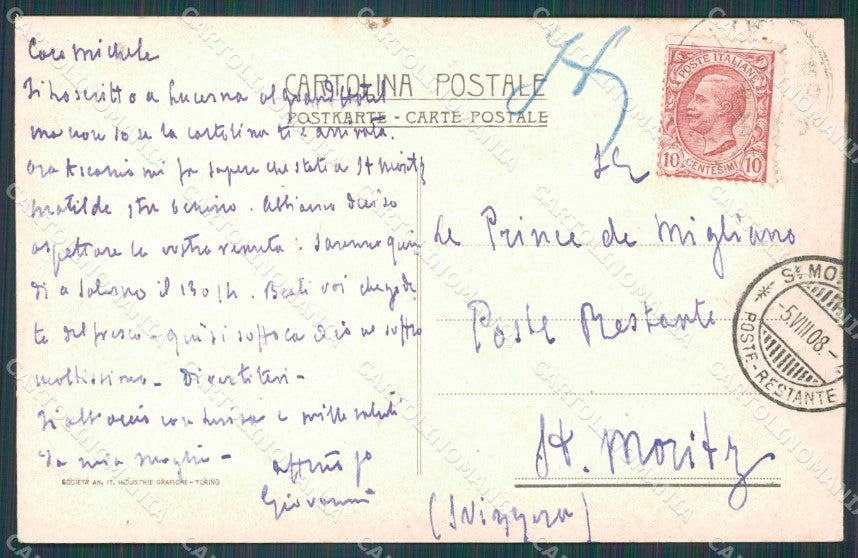 Caro Michele
Ti ho scritto a Lucerna al Grand Hotel
ma non so se la cartolina ti è arrivata.
Ora Ascanio mi fa sapere che stati a St Moritz
Matilde sta benino. Abbiamo deciso
aspettare la vostra venuta. Saremo quin
di a Salerno il
Beati voi che gode
te del fresco - qui si soffoca ed io ne soffro
moltissimo - Divertitevi -
Ti abbraccio con Luisa e mille saluti
da mia moglie -
affmo
Giovanni
CARTOLINA POSTALE
POSTKARTE - CARTE POSTALE
POSTE ITALIANE
10 CENTESIMI 10
Le Prince de Migliano
Poste Restante
St. Moritz
(Svizzera)
ST. MO
-5.VIII.08.-
POSTE-RESTANTE
SOCIETÀ AN. IT. INDUSTRIE GRAFICHE - TORINO
CARTOLINOMANIA